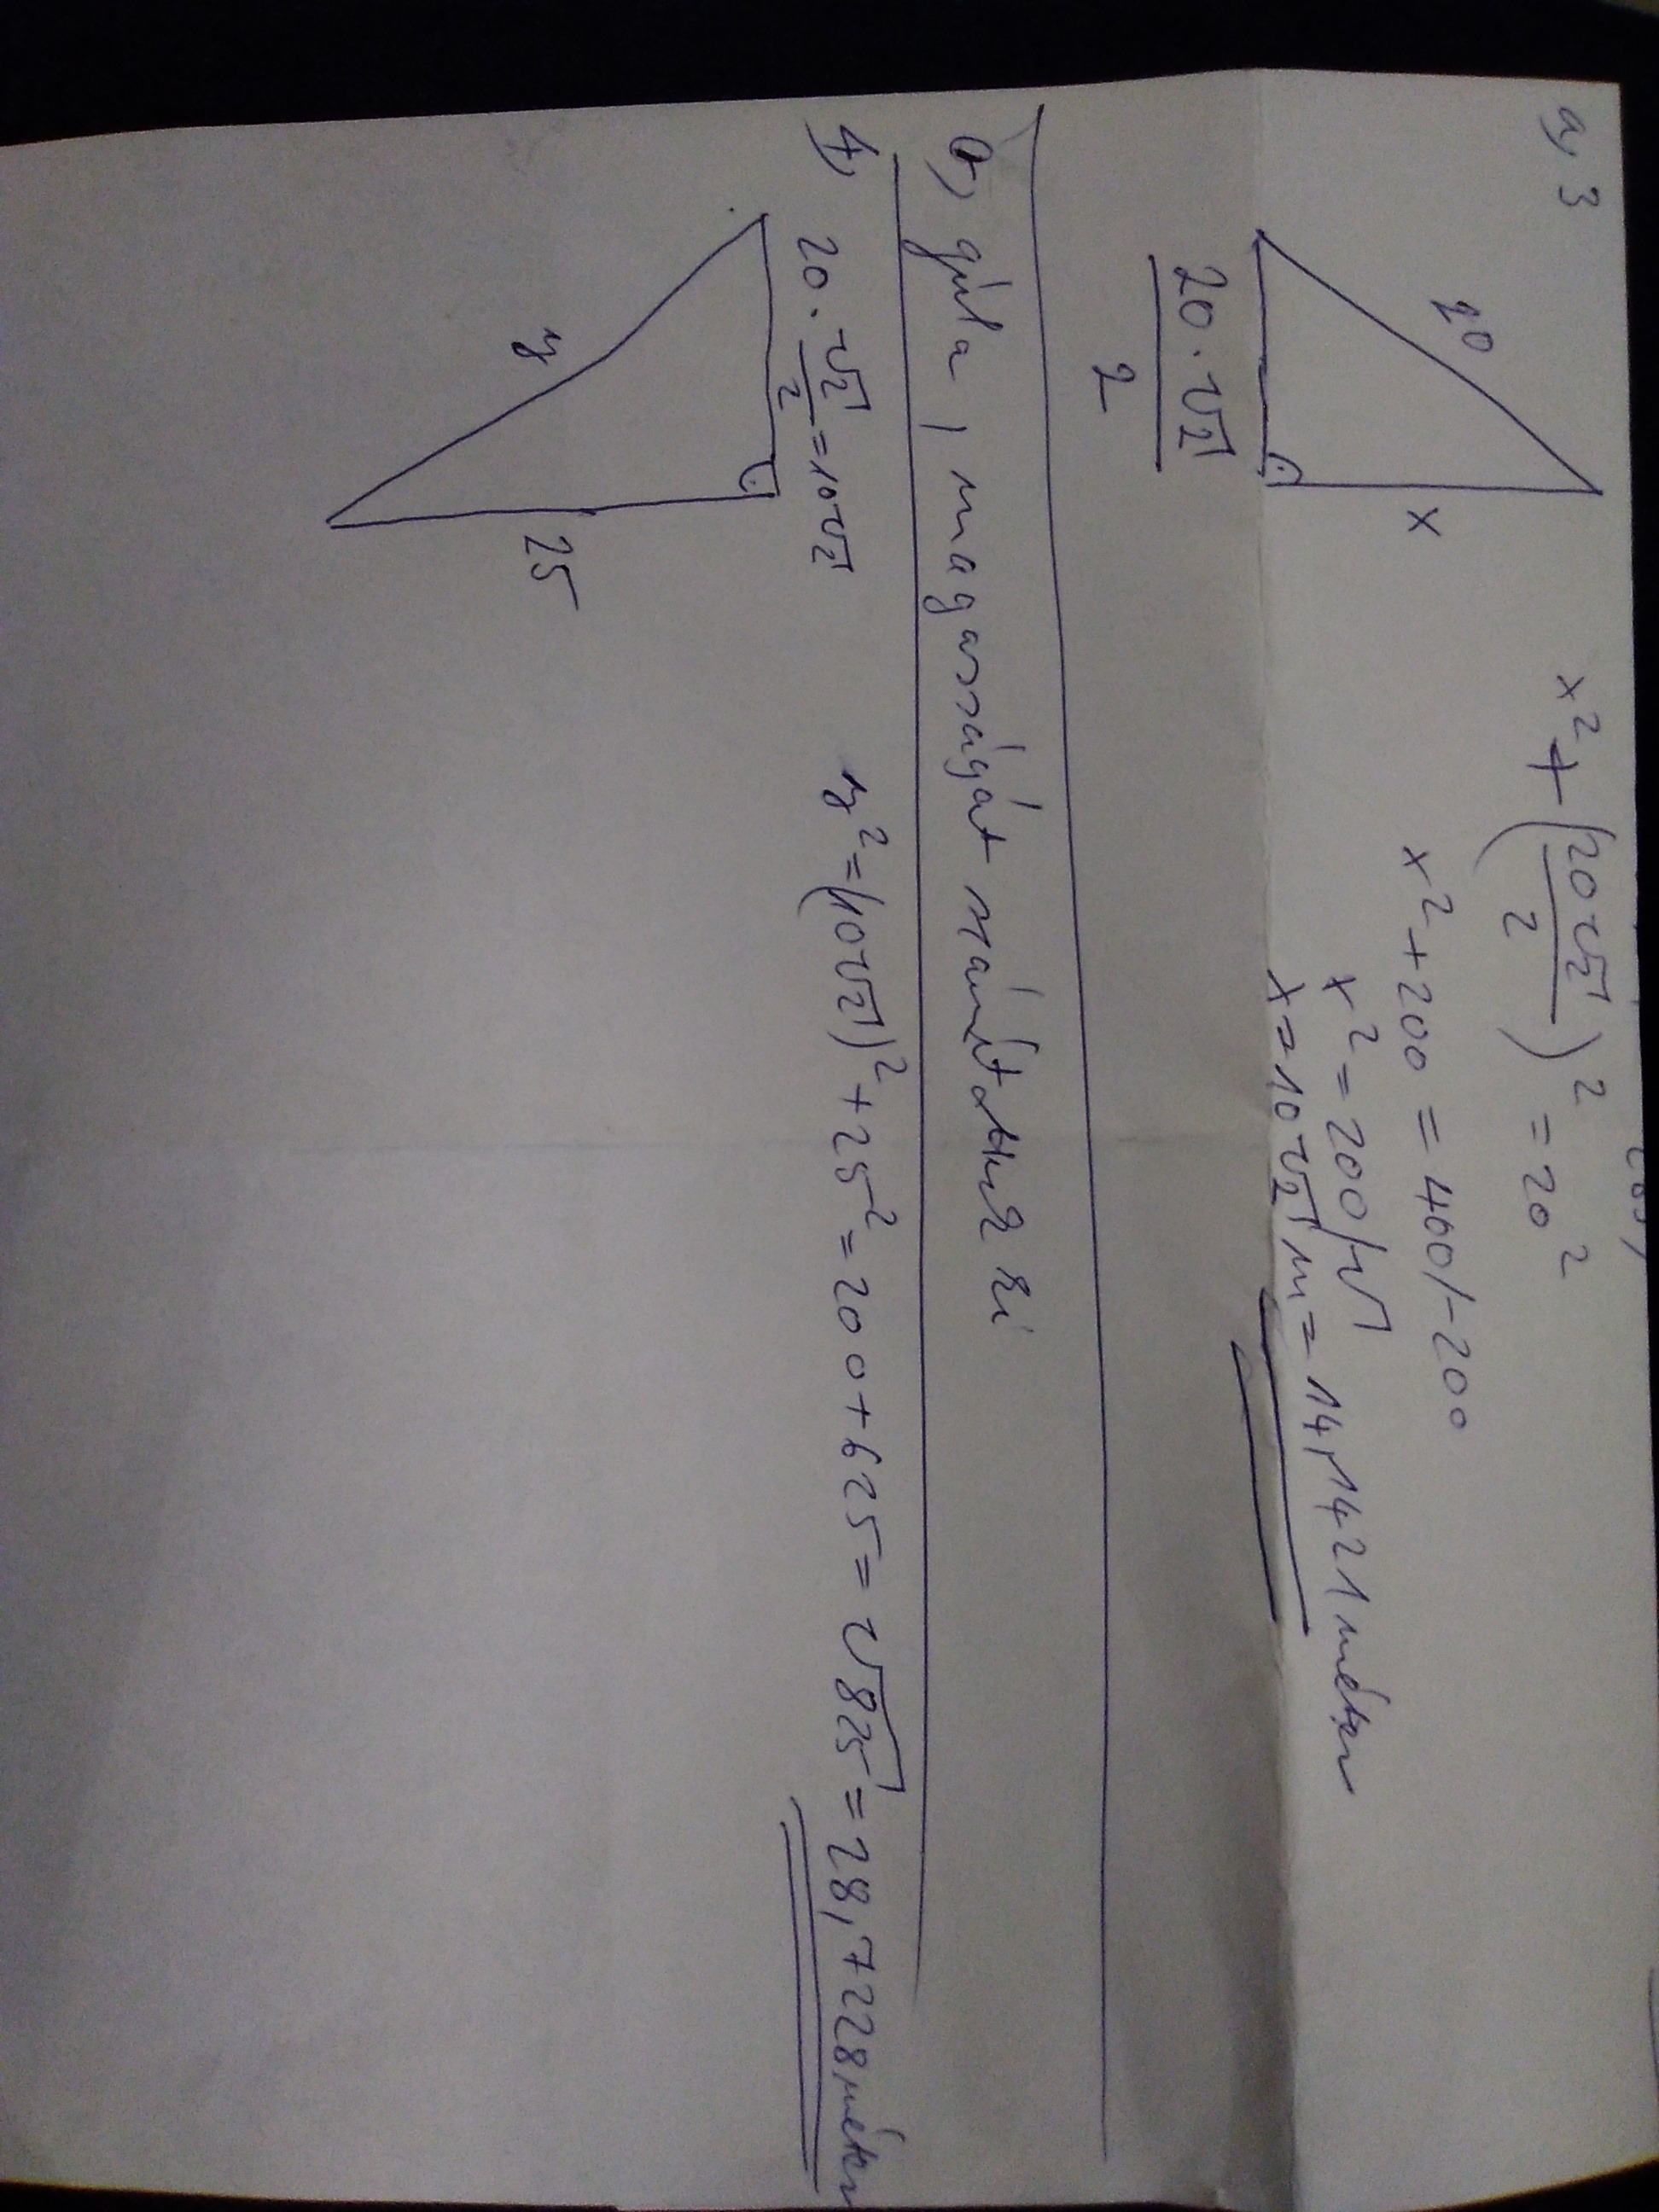 a, 3
20
x
20·√2
2
x² + (20√2 / 2)² = 20²
x² + 200 = 400 /-200
x² = 200 /√
x = 10√2 m = 14,1421 méter
gúla, magasságát számítottuk ki
20·√2/2 = 10√2
y
25
y² = (10√2)² + 25² = 200 + 625 = √825 = 28,7228 méter